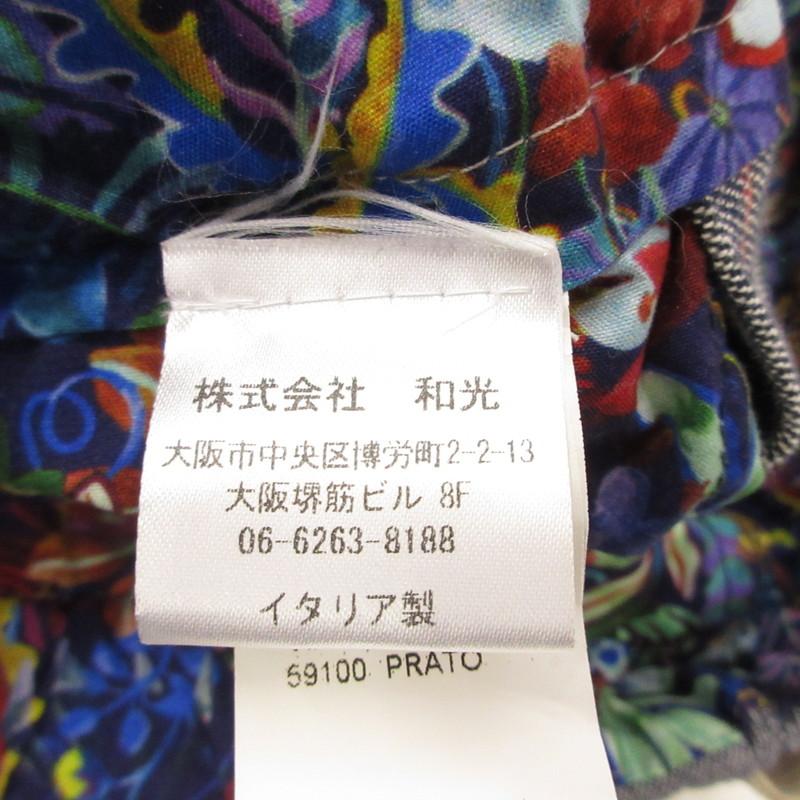 株式会社　和光
大阪市中央区博労町2-2-13
大阪堺筋ビル 8F
06-6263-8188
イタリア製
59100 PRATO